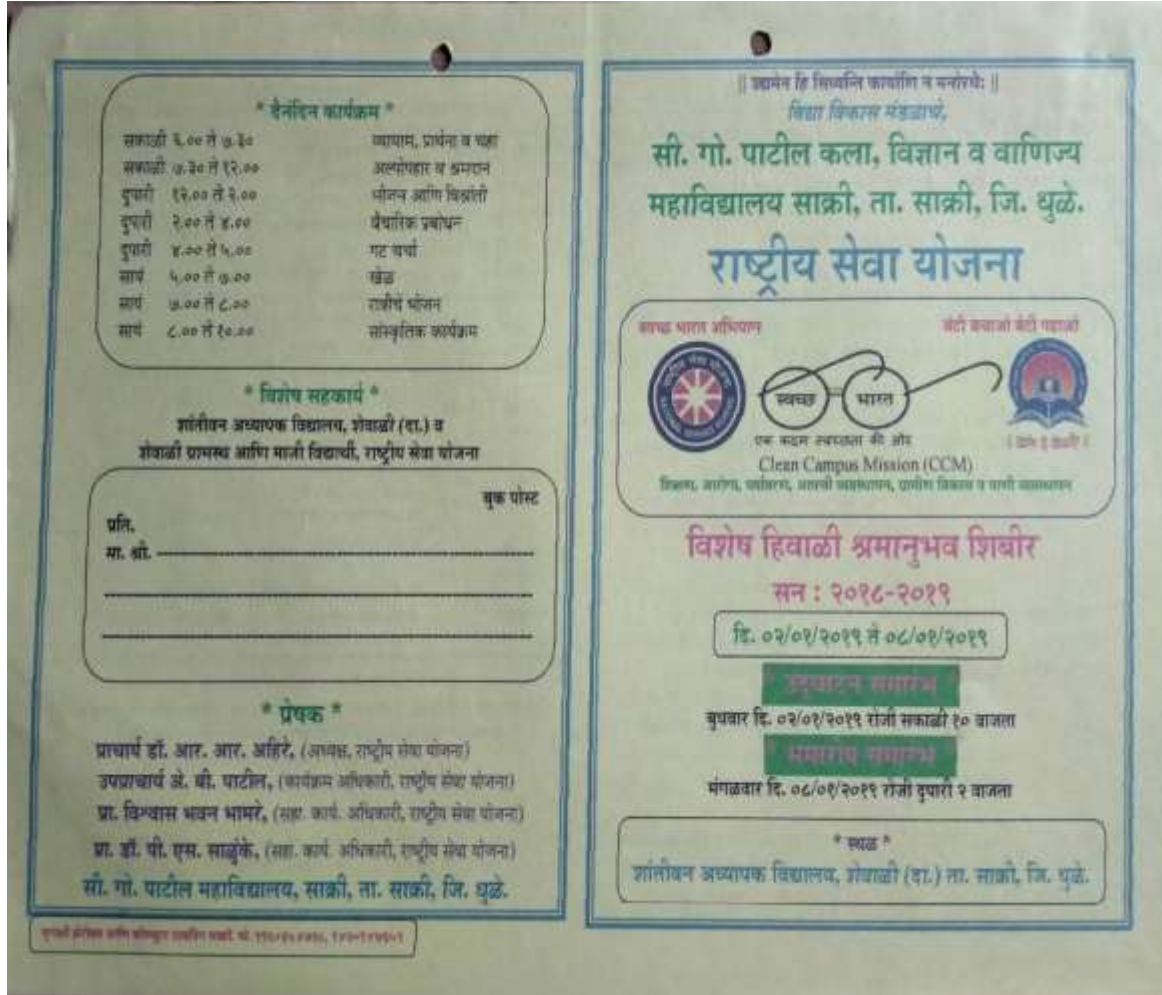 * दैनंदिन कार्यक्रम *
सकाळी ६.०० ते ७.३० व्यायाम, प्रार्थना व चहा
सकाळी ७.३० ते १२.०० अल्पोपहार व श्रमदान
दुपारी १२.०० ते २.०० भोजन आणि विश्रांती
दुपारी २.०० ते ४.०० वैचारिक प्रबोधन
दुपारी ४.०० ते ५.०० गट चर्चा
सायं ५.०० ते ७.०० खेळ
सायं ७.०० ते ८.०० रात्रीचे भोजन
सायं ८.०० ते १०.०० सांस्कृतिक कार्यक्रम
* विशेष सहकार्य *
शांतीवन अध्यापक विद्यालय, शेवाळी (दा.) व
शेवाळी ग्रामस्थ आणि माजी विद्यार्थी, राष्ट्रीय सेवा योजना
बुक पोस्ट
प्रति,
मा. श्री.
* प्रेषक *
प्राचार्य डॉ. आर. आर. अहिरे, (अध्यक्ष, राष्ट्रीय सेवा योजना)
उपप्राचार्य अे. बी. पाटील, (कार्यक्रम अधिकारी, राष्ट्रीय सेवा योजना)
प्रा. विश्वास भवन भामरे, (सहा. कार्य. अधिकारी, राष्ट्रीय सेवा योजना)
प्रा. डॉ. पी. एस. साळुंके, (सहा. कार्य. अधिकारी, राष्ट्रीय सेवा योजना)
सी. गो. पाटील महाविद्यालय, साक्री, ता. साक्री, जि. धुळे.
|| उद्यमेन हि सिध्यन्ति कार्याणि न मनोरथैः ||
विद्या विकास मंडळाचे,
सी. गो. पाटील कला, विज्ञान व वाणिज्य
महाविद्यालय साक्री, ता. साक्री, जि. धुळे.
राष्ट्रीय सेवा योजना
स्वच्छ भारत अभियान बेटी बचाओ बेटी पढाओ
स्वच्छ भारत
एक कदम स्वच्छता की ओर
Clean Campus Mission (CCM)
शिक्षण, आरोग्य, पर्यावरण, आपत्ती व्यवस्थापन, ग्रामीण विकास व पाणी व्यवस्थापन
विशेष हिवाळी श्रमानुभव शिबीर
सन : २०१८-२०१९
दि. ०२/०१/२०१९ ते ०८/०१/२०१९
* उद्घाटन समारंभ *
बुधवार दि. ०२/०१/२०१९ रोजी सकाळी १० वाजता
* समारोप समारंभ *
मंगळवार दि. ०८/०१/२०१९ रोजी दुपारी २ वाजता
* स्थळ *
शांतीवन अध्यापक विद्यालय, शेवाळी (दा.) ता. साक्री, जि. धुळे.